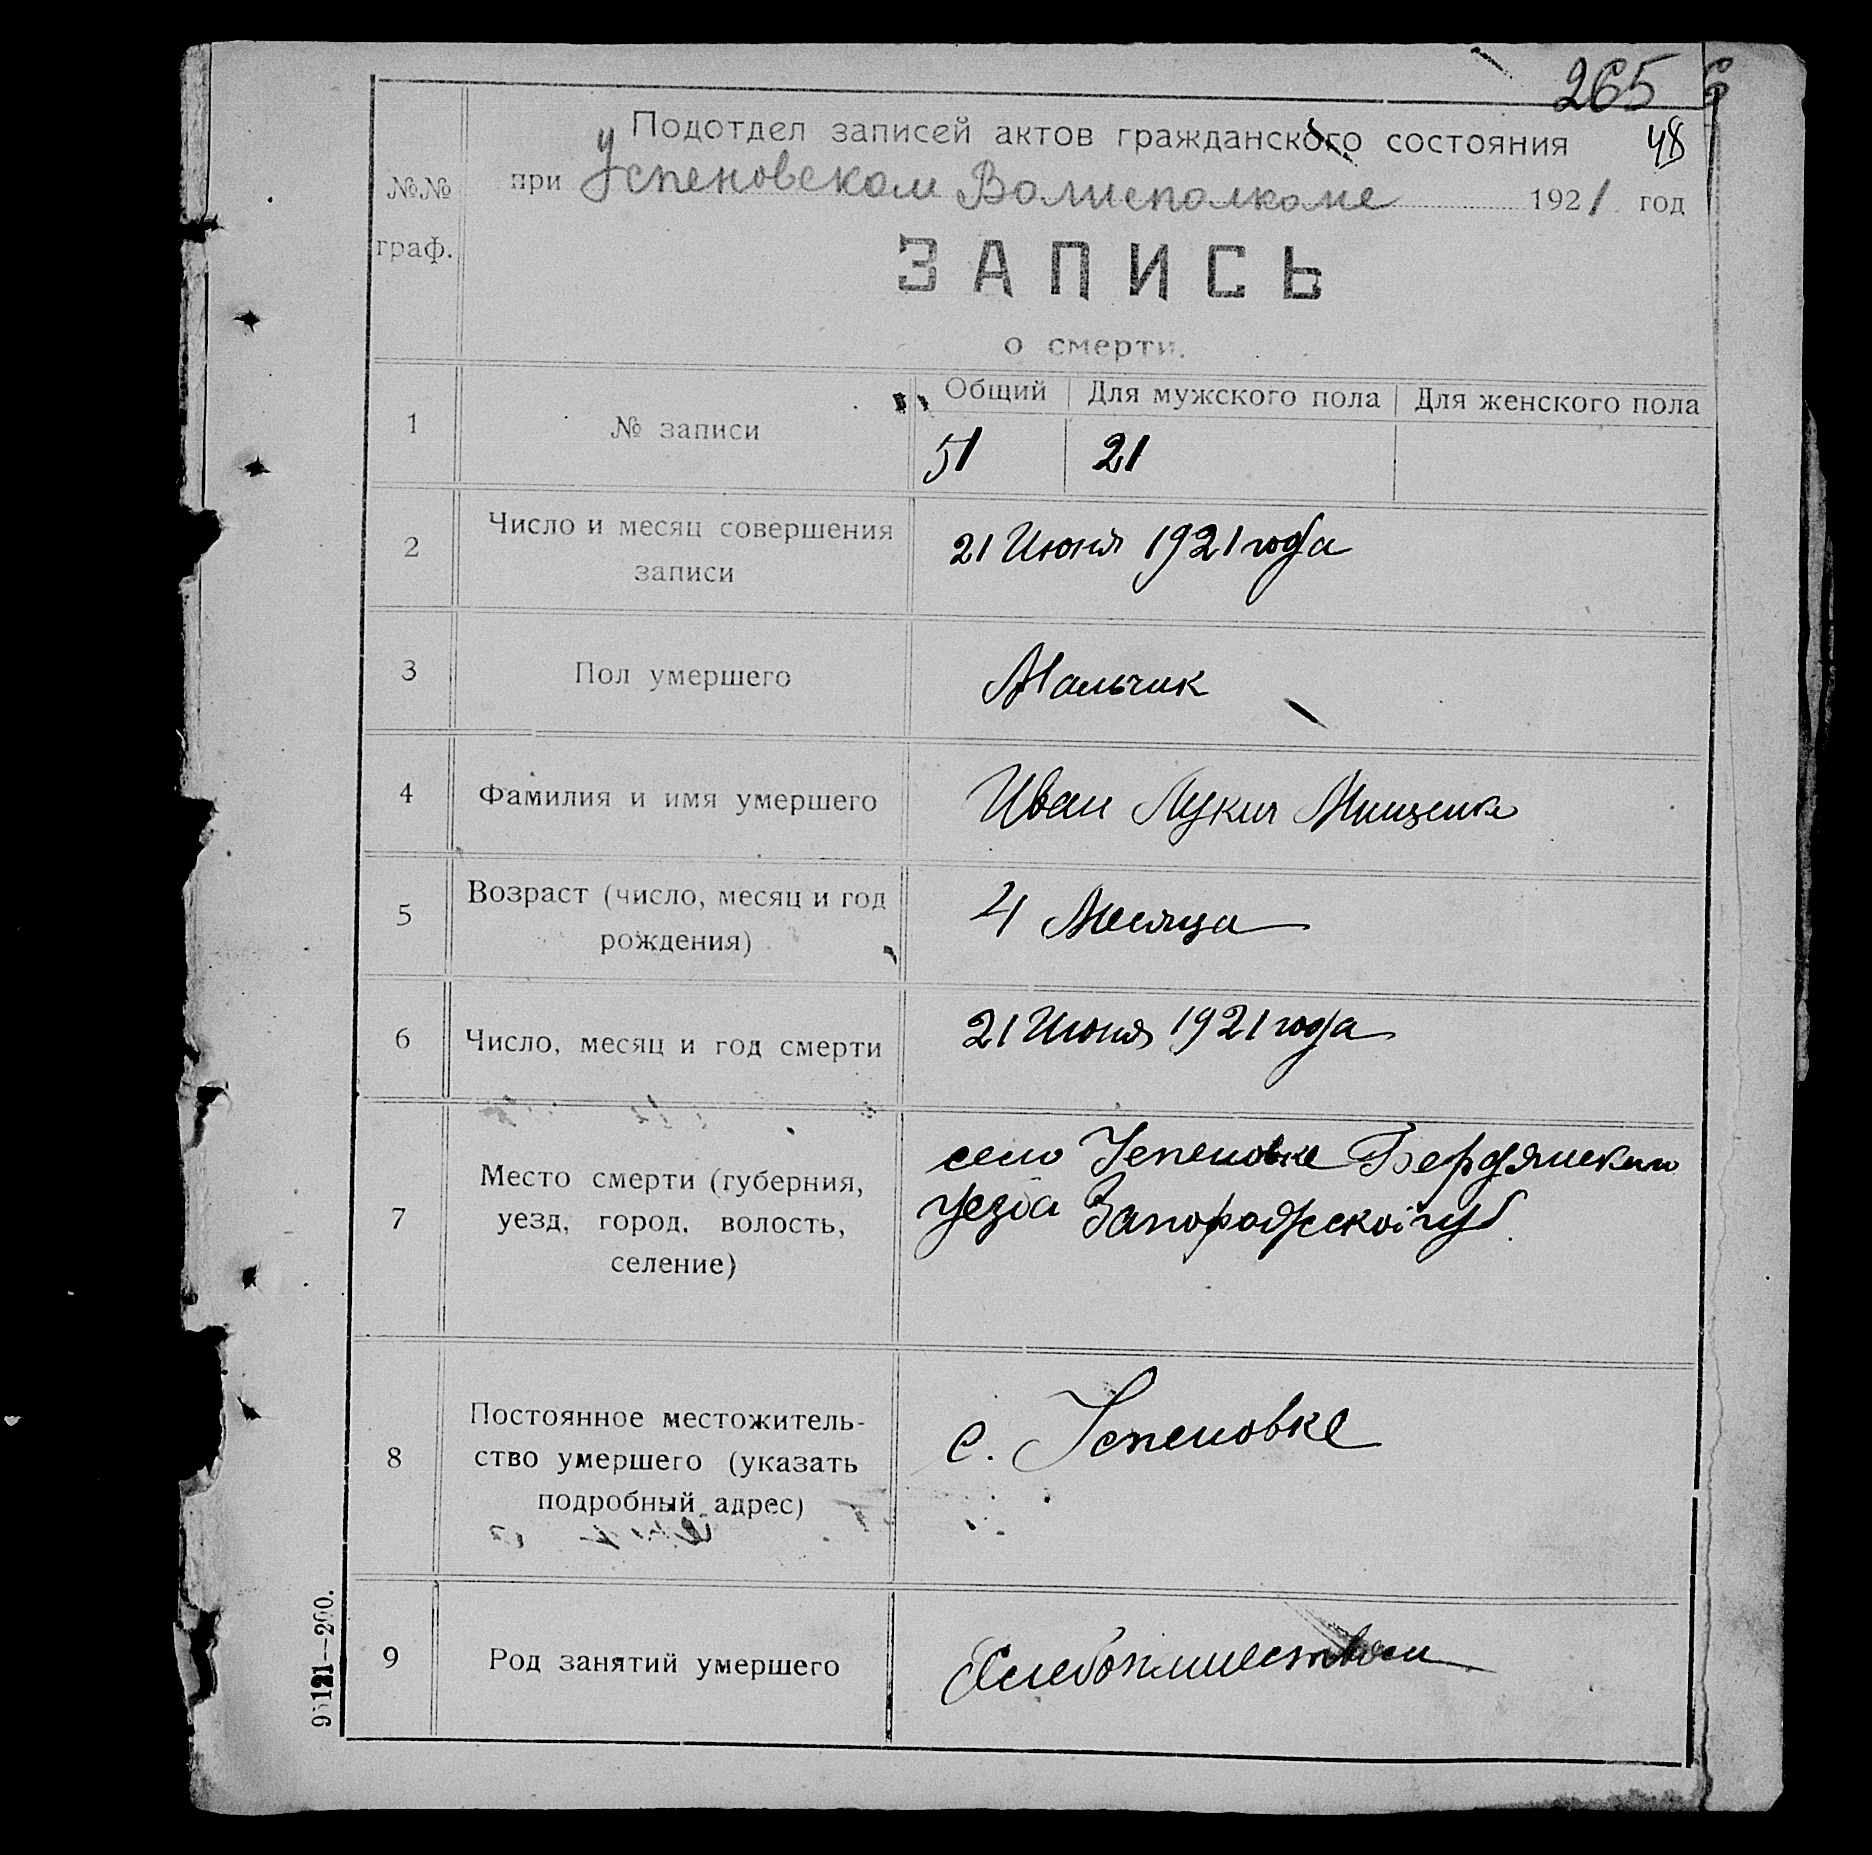 265
48
Подотдел записей актов гражданского состояния
при Успеновском Волисполкоме 1921 год
№№ граф.
ЗАПИСЬ
о смерти.
Общий Для мужского пола Для женского пола
1 № записи 51 21
2 Число и месяц совершения записи 21 Июня 1921 года
3 Пол умершего Мальчик
4 Фамилия и имя умершего Иван Лукич Мищенко
5 Возраст (число, месяц и год рождения) 4 Месяца
6 Число, месяц и год смерти 21 Июня 1921 года
7 Место смерти (губерния, уезд, город, волость, селение) село Успеновке Бердянского
уезда Запорожской губ
8 Постоянное местожитель-
ство умершего (указать
подробный адрес) с. Успеновке
9 Род занятий умершего Хлебопашеством